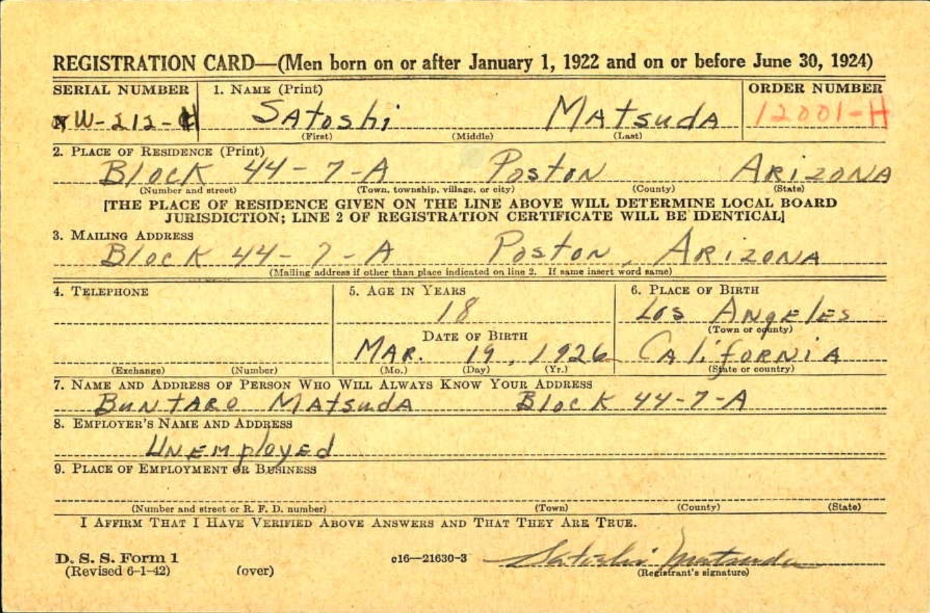 REGISTRATION CARD—(Men born on or after January 1, 1922 and on or before June 30, 1924)
SERIAL NUMBER 1. NAME (Print) ORDER NUMBER
W-212- Satoshi Matsuda 12001-H
(First) (Middle) (Last)
2. PLACE OF RESIDENCE (Print)
Block 44-7-A Poston Arizona
(Number and street) (Town, township, village, or city) (County) (State)
[THE PLACE OF RESIDENCE GIVEN ON THE LINE ABOVE WILL DETERMINE LOCAL BOARD
JURISDICTION; LINE 2 OF REGISTRATION CERTIFICATE WILL BE IDENTICAL]
3. MAILING ADDRESS
Block 44-7-A Poston, Arizona
(Mailing address if other than place indicated on line 2. If same insert word same)
4. TELEPHONE 5. AGE IN YEARS 6. PLACE OF BIRTH
18 Los Angeles
DATE OF BIRTH (Town or county)
Mar. 19, 1926 California
(Exchange) (Number) (Mo.) (Day) (Yr.) (State or country)
7. NAME AND ADDRESS OF PERSON WHO WILL ALWAYS KNOW YOUR ADDRESS
Buntaro Matsuda Block 44-7-A
8. EMPLOYER'S NAME AND ADDRESS
Unemployed
9. PLACE OF EMPLOYMENT OR BUSINESS
(Number and street or R. F. D. number) (Town) (County) (State)
I AFFIRM THAT I HAVE VERIFIED ABOVE ANSWERS AND THAT THEY ARE TRUE.
D. S. S. Form 1 c16—21630-3 Satoshi Matsuda
(Revised 6-1-42) (over) (Registrant's signature)